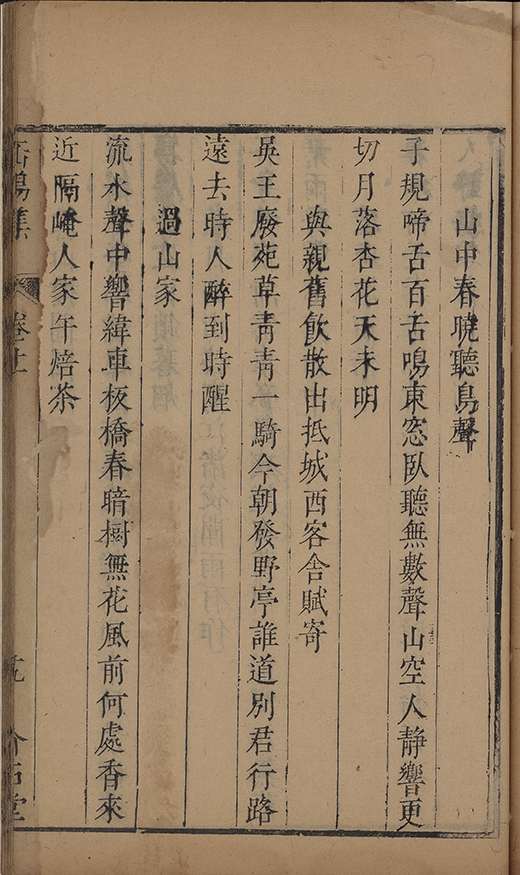 山中春曉聽鳥聲
子規啼舌百舌鳴東窓臥聽無數聲山空人靜響更
切月落杏花天未明
與親舊飲散出抵城西客舍賦寄
吳王廢苑草靑靑一騎今朝發野亭誰道別君行路
遠去時人醉到時醒
過山家
流水聲中響緯車板橋春暗樹無花風前何處香來
近隔崦人家午焙茶
缶鳴集 卷十
九 介石堂